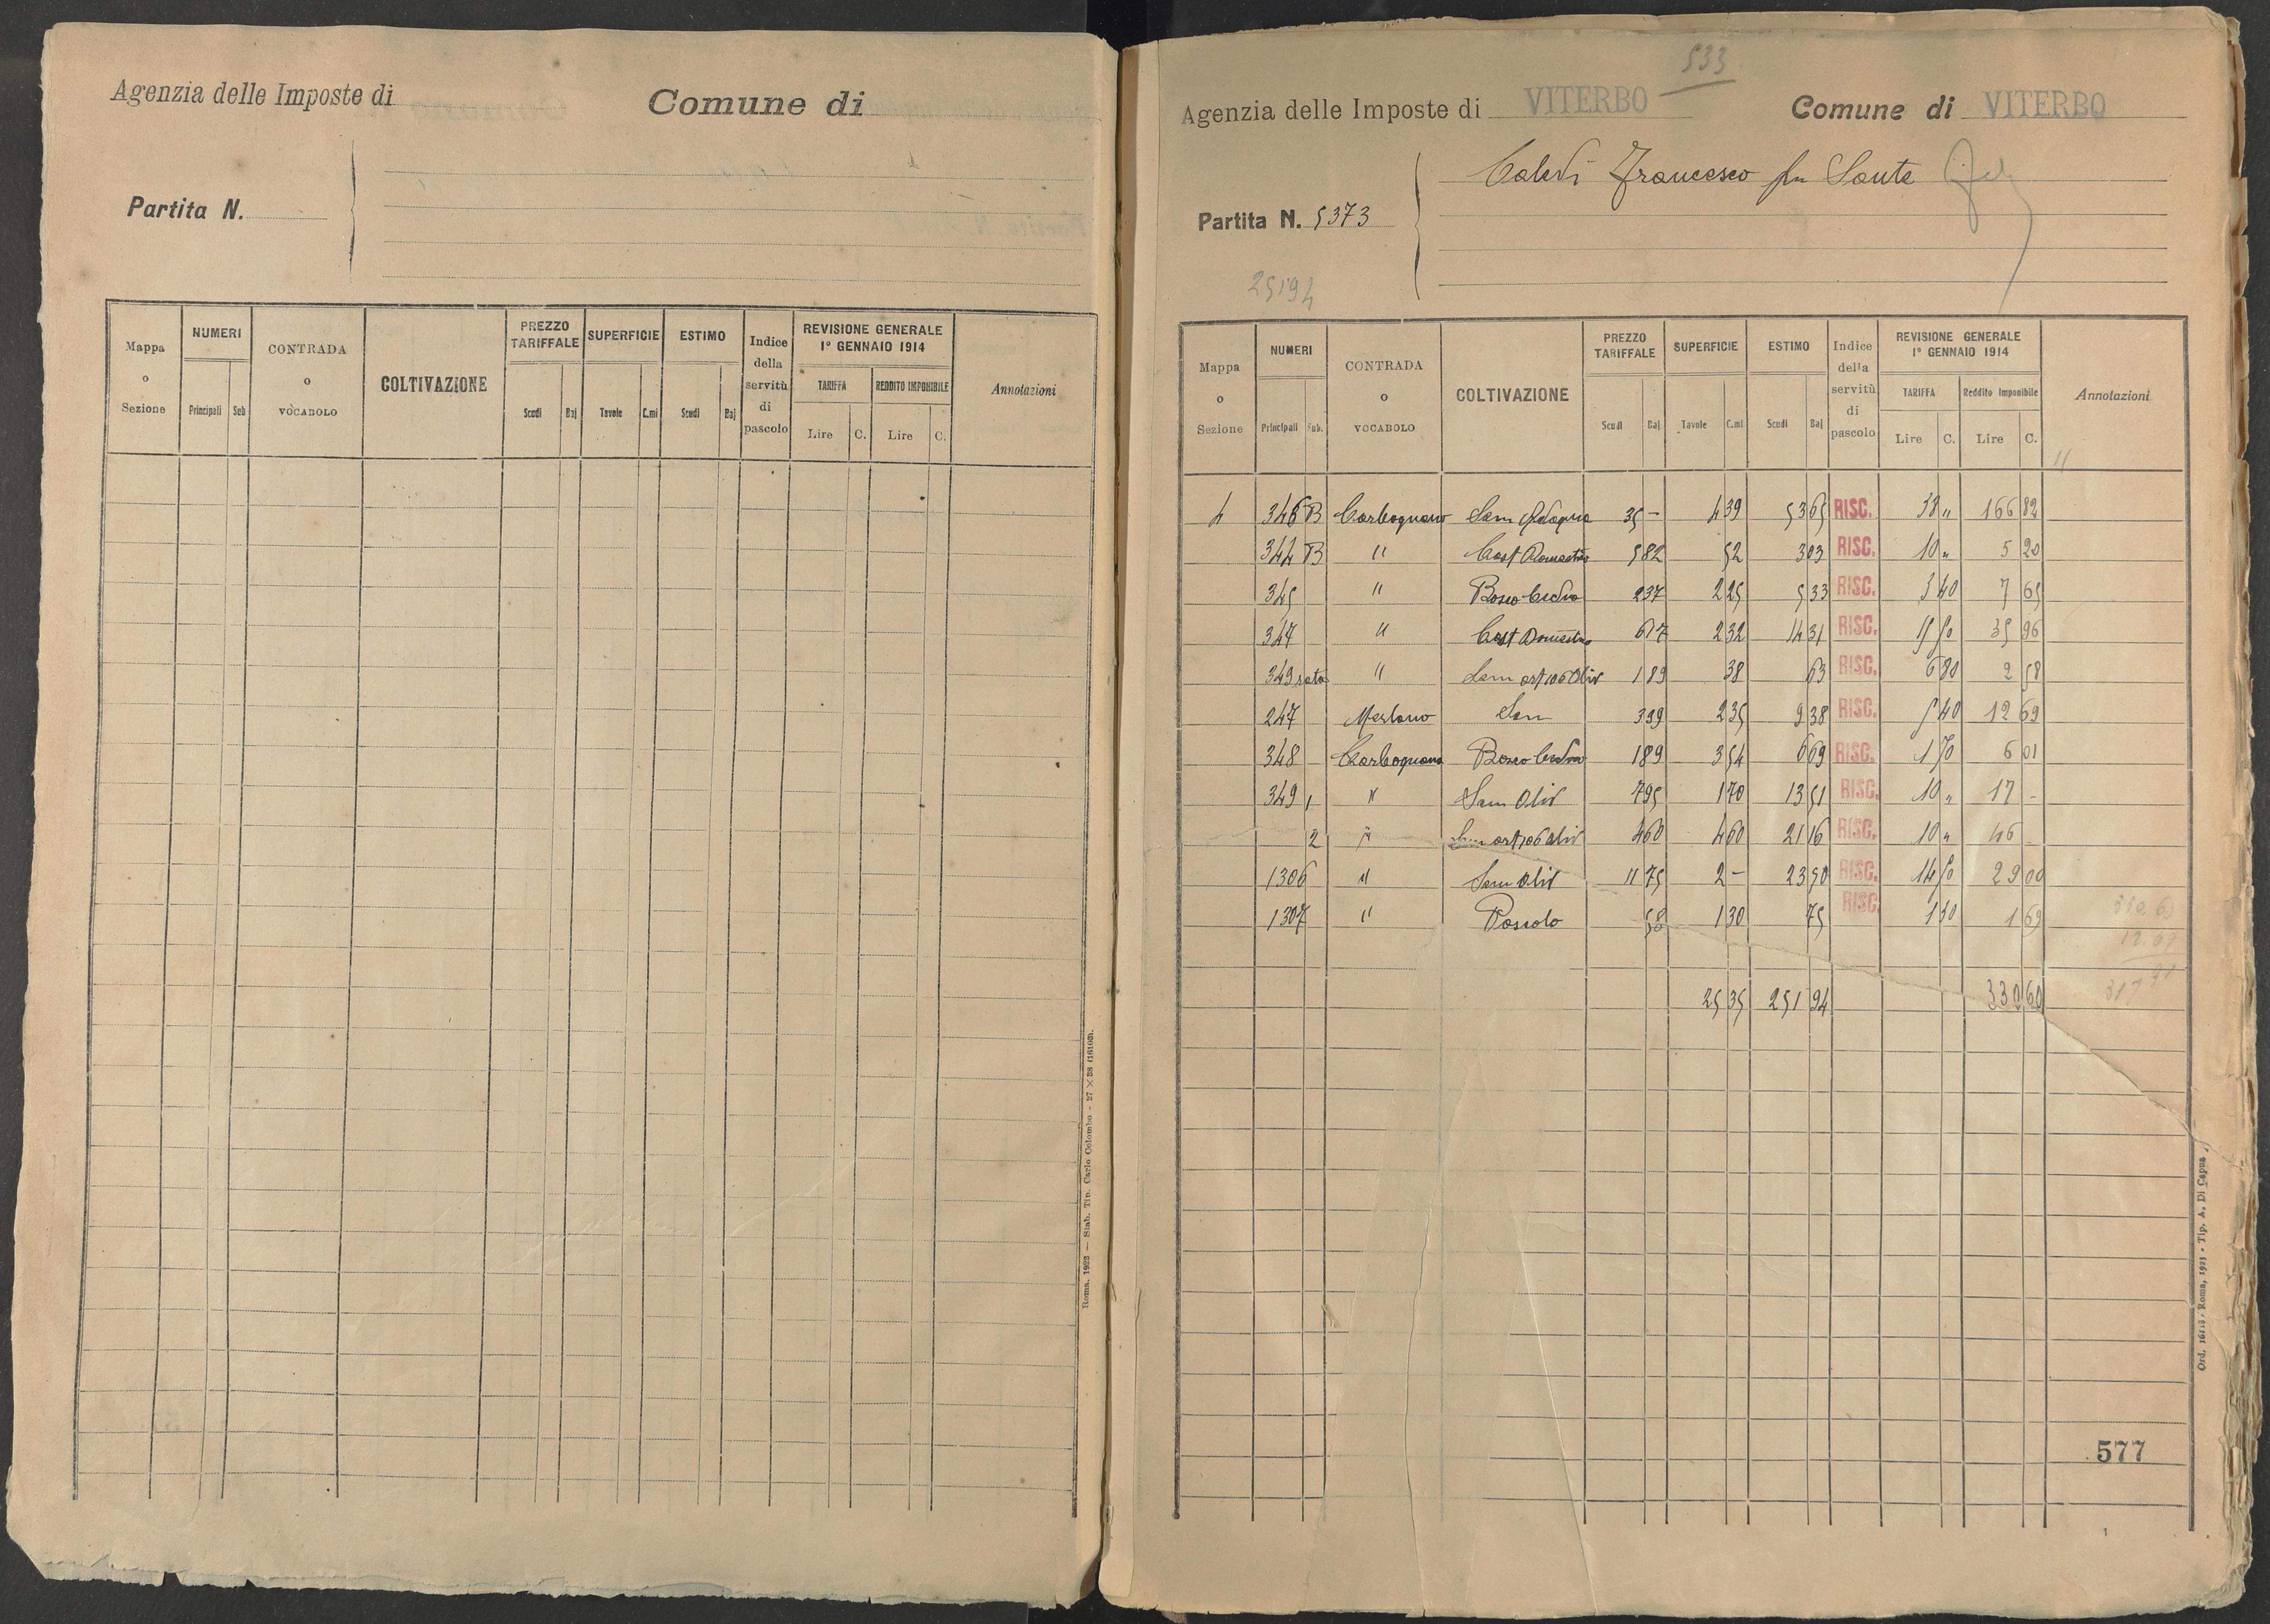 Agenzia delle Imposte di
Comune di
Partita N.
Mappa o Sezione
NUMERI
Principali Sub
CONTRADA o VOCABOLO
COLTIVAZIONE
PREZZO TARIFFALE
Scudi Baj
SUPERFICIE
Tavole C.mi
ESTIMO
Scudi Baj
Indice della servitù di pascolo
REVISIONE GENERALE
1° GENNAIO 1914
TARIFFA
Lire C.
REDDITO IMPONIBILE
Lire C.
Annotazioni
Roma, 1922 — Stab. Tip. Carlo Colombo - 27 × 38
533
Agenzia delle Imposte di VITERBO
Comune di VITERBO
Francesco fu Sante
Partita N. 5373
25194
Mappa o Sezione
NUMERI
Principali Sub.
CONTRADA o VOCABOLO
COLTIVAZIONE
PREZZO TARIFFALE
Scudi Baj
SUPERFICIE
Tavole C.mi
ESTIMO
Scudi Baj
Indice della servitù di pascolo
REVISIONE GENERALE
1° GENNAIO 1914
TARIFFA
Lire C.
Reddito Imponibile
Lire C.
Annotazioni
4 346 B Carbognano Sem 35 - 4 39 53 65 RISC. 38 " 166 82
344 B " Cast Domestico 5 82 52 3 03 RISC. 10 " 5 20
345 " Bosco Ceduo 2 37 2 25 5 33 RISC. 3 40 7 65
347 " Cast Domestico 6 17 2 32 14 31 RISC. 15 50 35 96
349 rata " Sem art 106 Oliv 1 89 38 63 RISC. 6 80 2 58
247 Merlano Sem 3 99 2 35 9 38 RISC. 5 40 12 69
348 Carbognano Bosco Ceduo 1 89 3 54 6 69 RISC. 1 70 6 01
349 1 " Sem Oliv 7 95 1 70 13 51 RISC. 10 " 17 -
2 " Sem art 106 Oliv 4 60 4 60 21 16 RISC. 10 " 46 -
1306 " Sem Oliv 11 75 2 - 23 50 RISC. 14 50 29 00
1307 " Pascolo 58 1 30 75 RISC. 1 30 1 69
25 35 251 94 330 60
577
Roma, 1923 - Tip. A. Di Capua